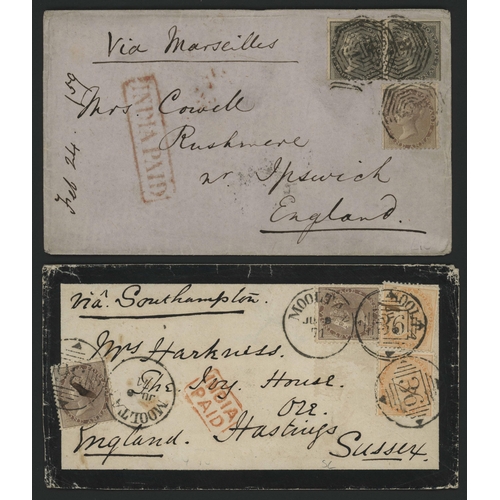 Via Marseilles
INDIA PAID
Feb 24. 159
Mrs Cowell
Rushmere
nr Ipswich
England.
via Southampton.
MOOLTA
MOOLTA
Mrs Harkness.
The Ivy House.
MOOLTA
INDIA
PAID
Ore.
England. Hastings
Sussex.